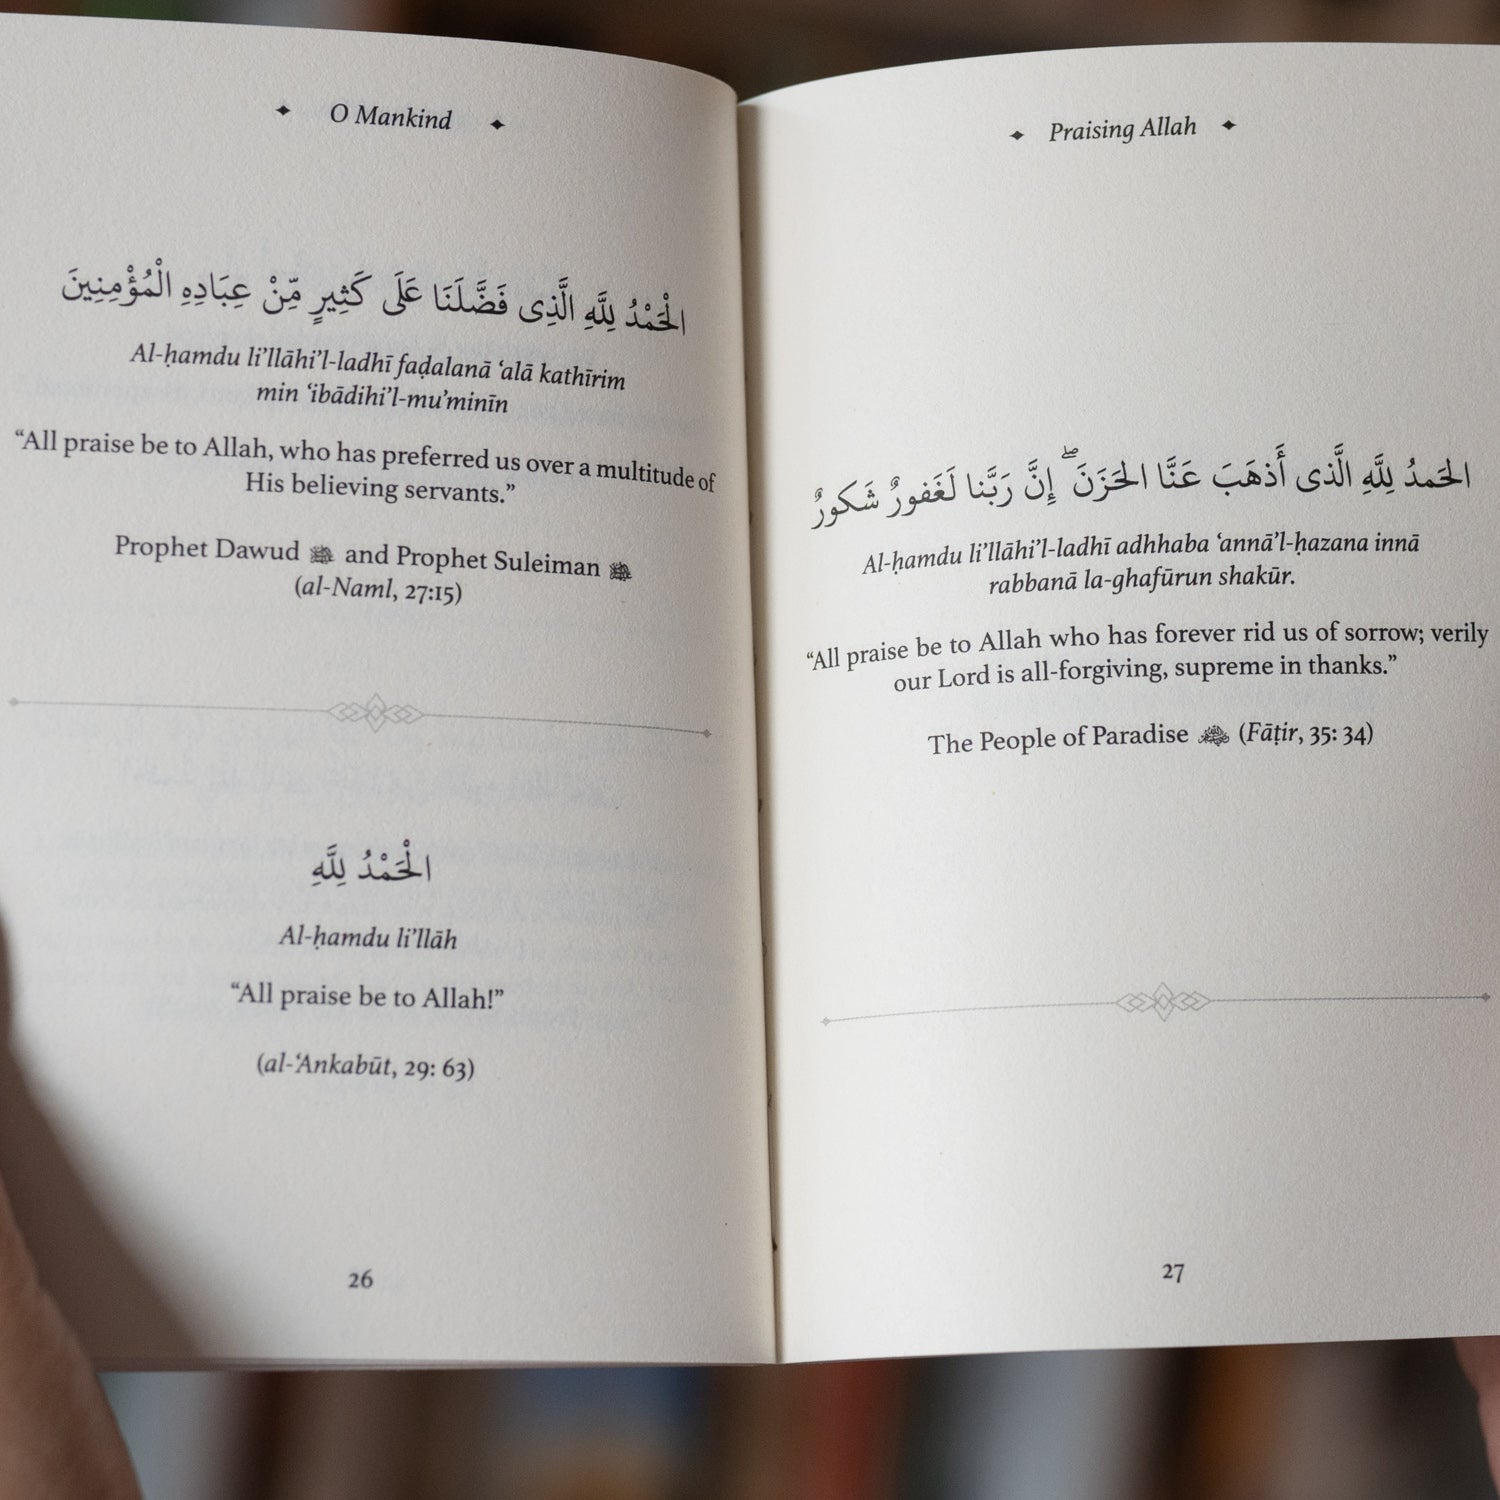 O Mankind
الْحَمْدُ لِلَّهِ الَّذِى فَضَّلَنَا عَلَى كَثِيرٍ مِّنْ عِبَادِهِ الْمُؤْمِنِينَ
Al-ḥamdu li’llāhi’l-ladhī faḍalanā ‘alā kathīrim
min ‘ibādihi’l-mu’minīn
“All praise be to Allah, who has preferred us over a multitude of
His believing servants.”
Prophet Dawud and Prophet Suleiman
(al-Naml, 27:15)
الْحَمْدُ لِلَّهِ
Al-ḥamdu li’llāh
“All praise be to Allah!”
(al-‘Ankabūt, 29: 63)
26
Praising Allah
الحَمدُ لِلَّهِ الَّذى أَذهَبَ عَنَّا الحَزَنَ ۖ إِنَّ رَبَّنا لَغَفورٌ شَكورٌ
Al-ḥamdu li’llāhi’l-ladhī adhhaba ‘annā’l-ḥazana innā
rabbanā la-ghafūrun shakūr.
“All praise be to Allah who has forever rid us of sorrow; verily
our Lord is all-forgiving, supreme in thanks.”
The People of Paradise (Fāṭir, 35: 34)
27